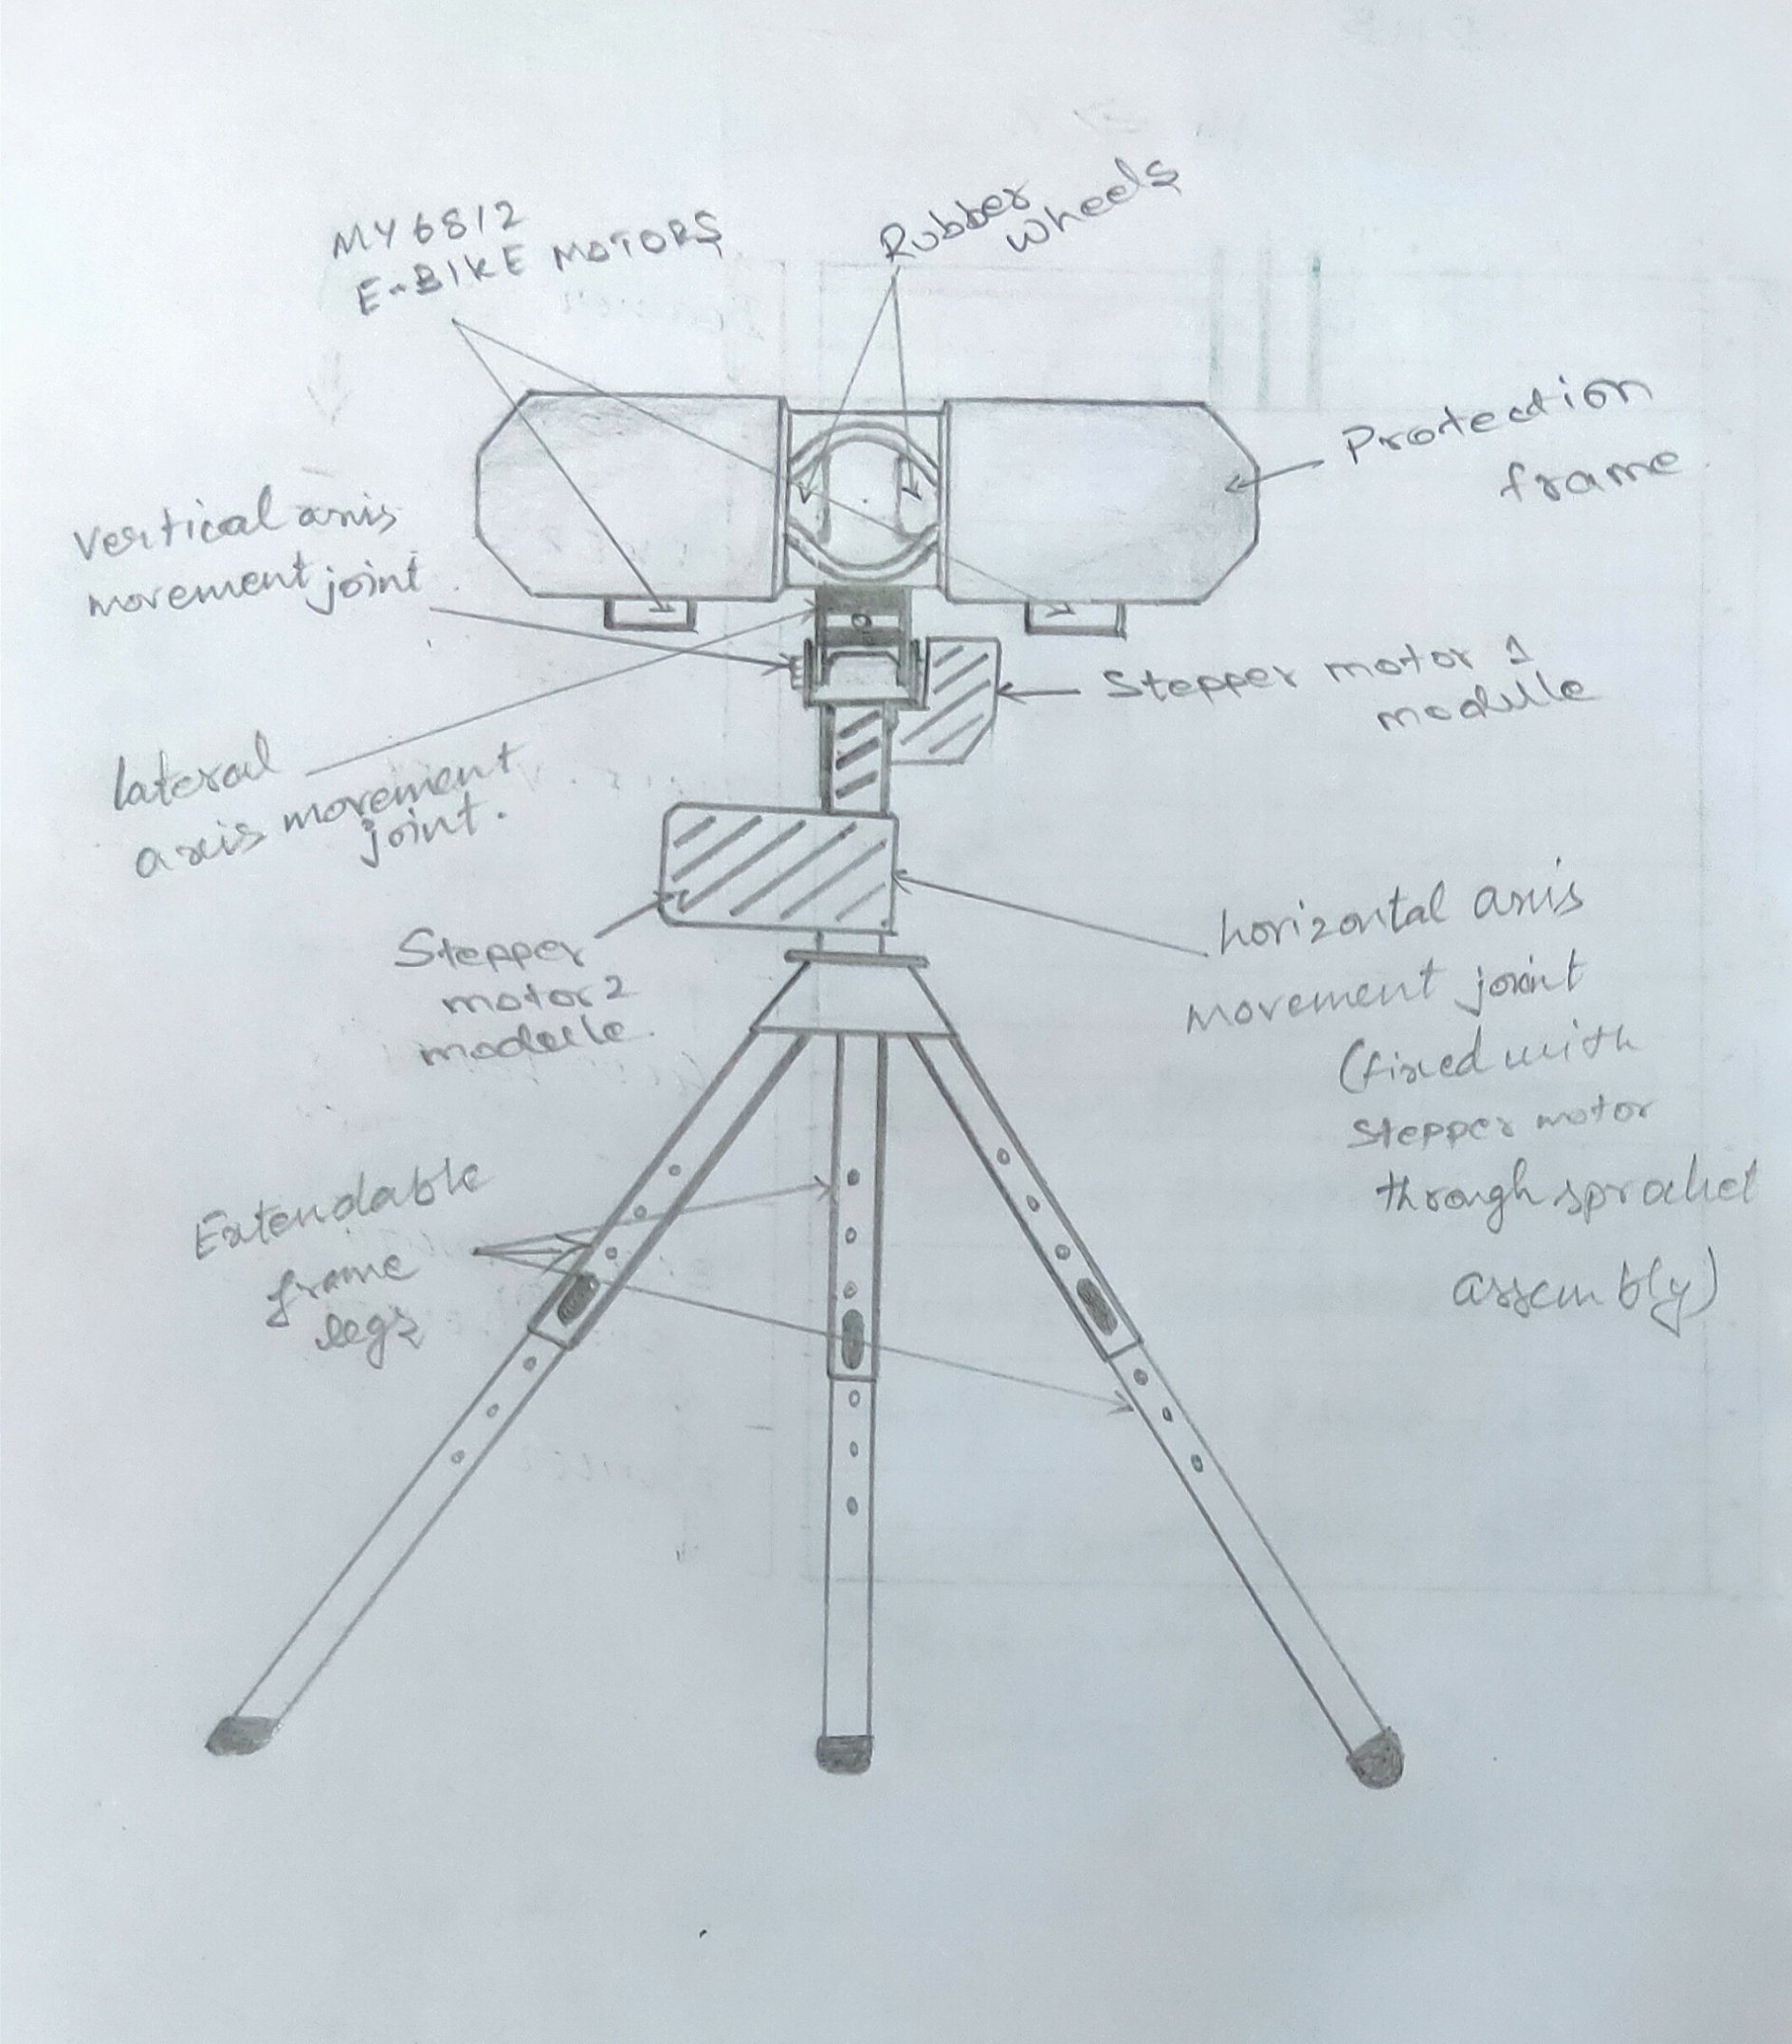 MY6812
E-BIKE MOTORS
Rubber
wheels
Protection
frame
vertical axis
movement joint
Stepper motor 1
module
lateral
axis movement
joint.
Stepper
motor 2
module
horizontal axis
movement joint
(fixed with
stepper motor
through sprocket
assembly)
Extendable
frame
legs